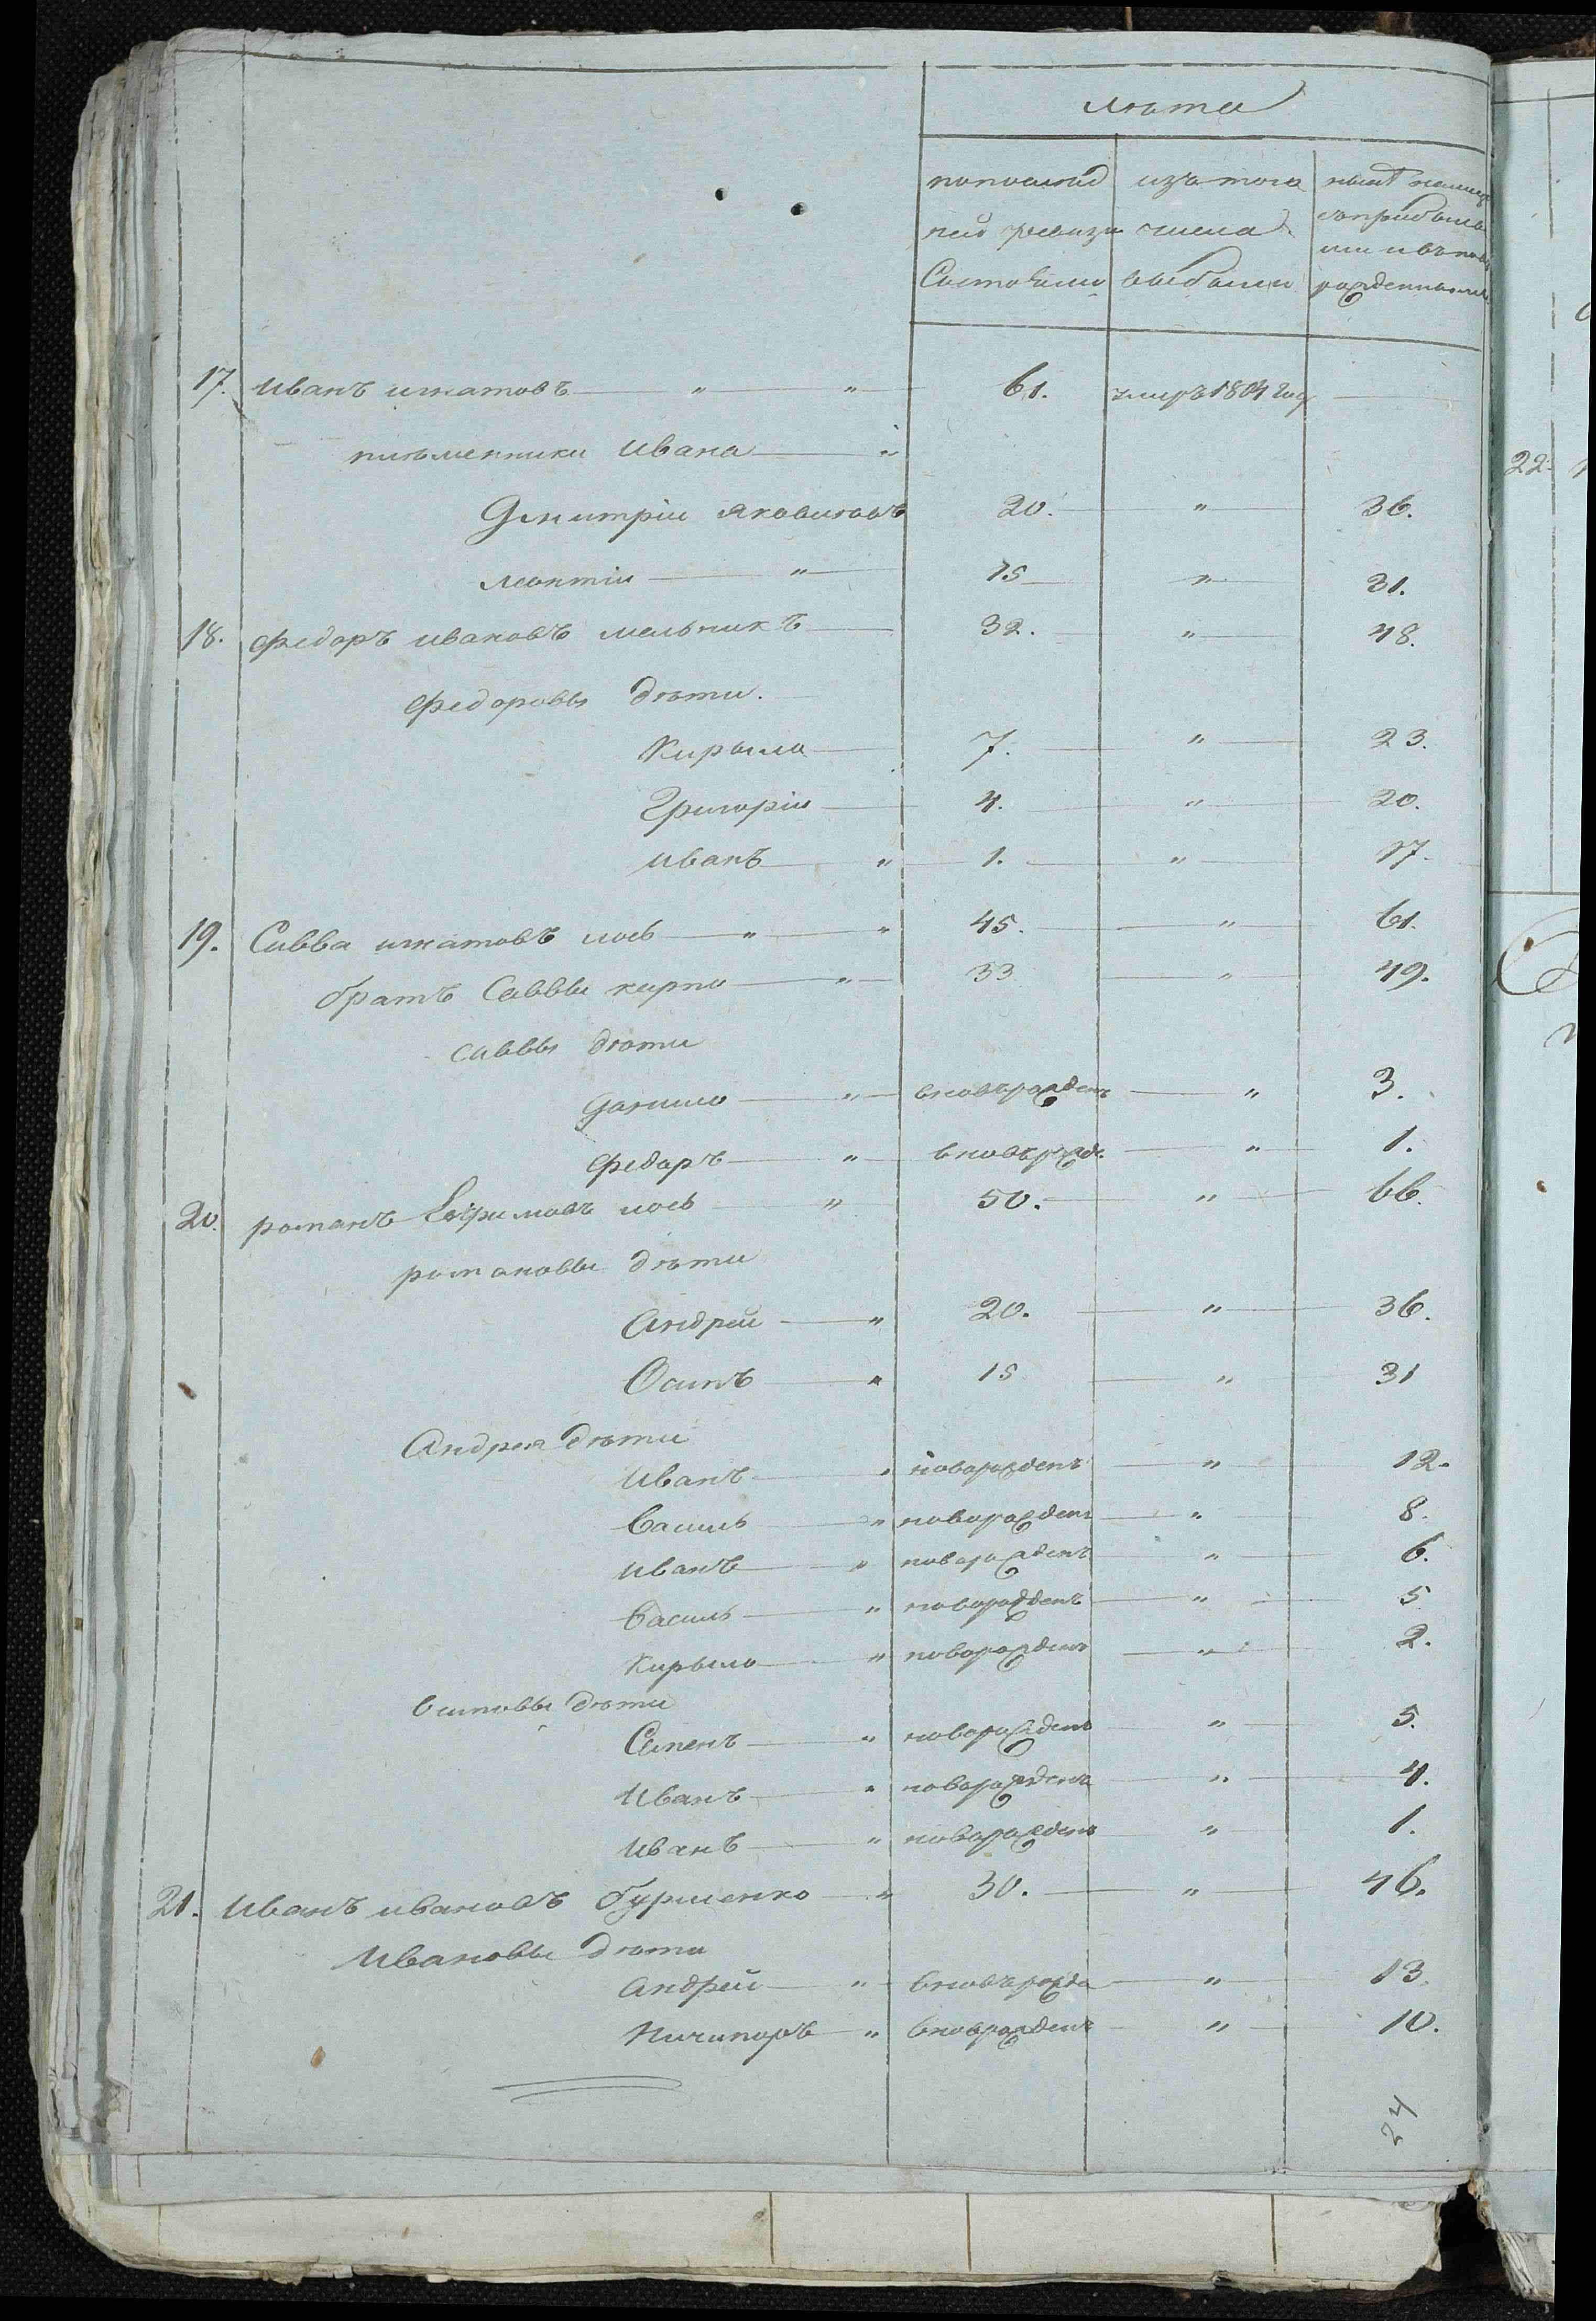 лѣта
попослѣд изъ того нынѣ налицо
ней ревизи числа соприбылы
ми ивъново
Состояло выбыли рожденными
17. Иванъ игнатовъ " " 61. умиръ 1804 год
племенники Ивана "
Дмитріи яковлевъ 20. " 36.
леонтіи " 15 " 31.
18. федоръ ивановъ мельникъ 32. " 48.
федоровы дѣти.
Кирыло 7. " 23.
Григоріи 4. " 20.
иванъ " 1. " 17.
19. Савва игнатовъ лось " " 45. " 61.
братъ Саввы карпо " 33 " 49.
саввы дѣти
Данило " вновьрожденъ " 3.
федоръ " вновьрожд. " 1.
20. романъ Ефимовъ лось " 50. " 66.
романовы дѣти
Андрей " 20. " 36.
Осипъ " 15 " 31
Андрея дѣти
Иванъ " новорожденъ " 12.
Василь " новорожденъ " 8.
Иванъ " новорожденъ " 6.
Василь " новорожденъ " 5
Кирыло " новорожденъ " 2.
Осиповы дѣти
Семенъ " новорожденъ " 5.
Иванъ " новорожденъ " 4.
Иванъ " новорожденъ " 1.
21. Иванъ ивановъ бурменко " 30. " 46.
Ивановы дѣти
Андрей " вновьрожде " 13
Ничипоръ " вноврожденъ " 10.
24
22.